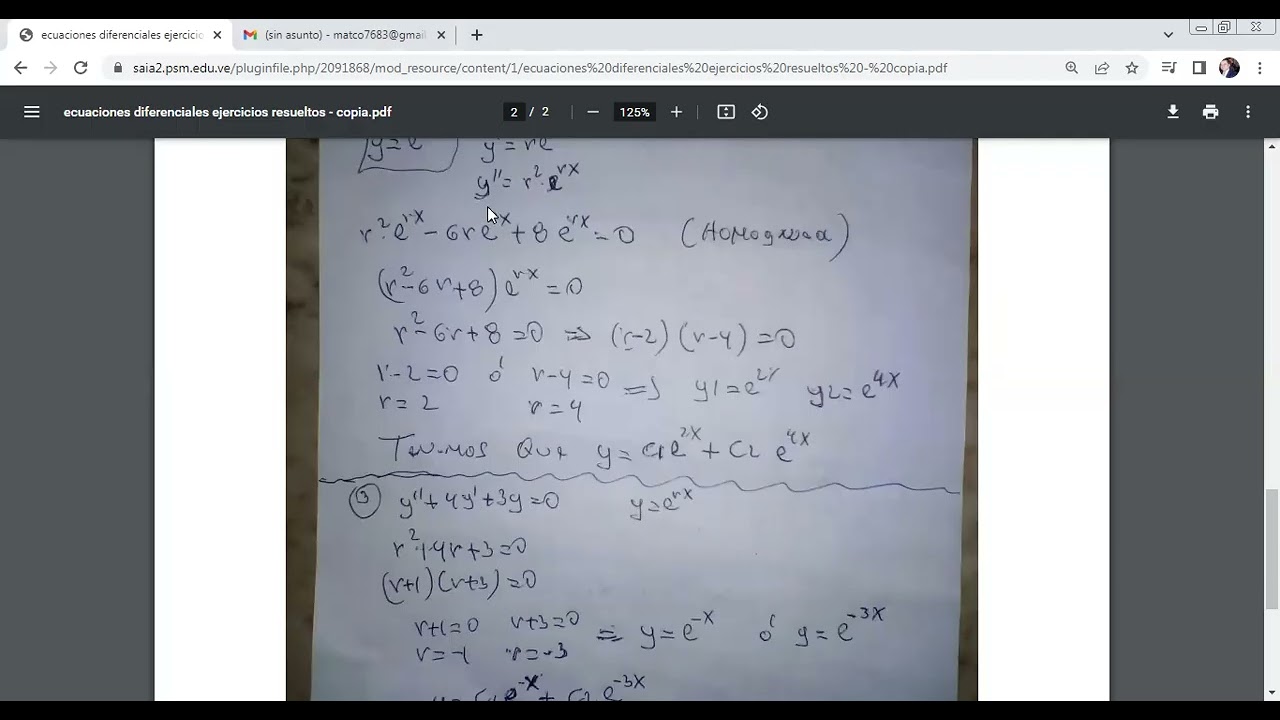 ecuaciones diferenciales ejercicio
(sin asunto) - matco7683@gmail
saia2.psm.edu.ve/pluginfile.php/2091868/mod_resource/content/1/ecuaciones%20diferenciales%20ejercicios%20resueltos%20-%20copia.pdf
ecuaciones diferenciales ejercicios resueltos - copia.pdf 2 / 2 125%
y=e y'=re
y''=r²·e^rx
r²·e^rx-6re^rx+8e^rx=0 (Homogenea)
(r²-6r+8)e^rx=0
r²-6r+8=0 => (r-2)(r-4)=0
r-2=0 ó r-4=0 => y1=e^2x y2=e^4x
r=2 r=4
Tenemos Que y=C1e^2x+C2e^4x
③ y''+4y'+3y=0 y=e^rx
r²+4r+3=0
(r+1)(r+3)=0
r+1=0 r+3=0 => y=e^-x ó y=e^-3x
r=-1 r=-3
y=C1e^-x+C2e^-3x